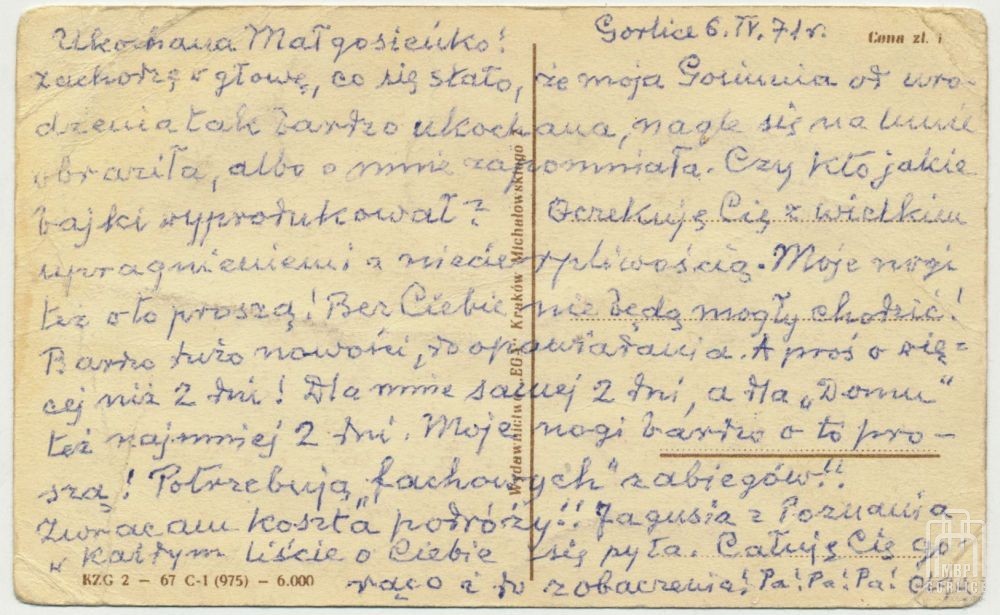 Gorlice 6.IV.71r.
Cena zł. 1
Ukochana Małgosieńko!
zachodzę w głowę, co się stało, że moja Gosiunia od uro-
dzenia tak bardzo ukochana, nagle się na mnie
obraziła, albo o mnie zapomniała. Czy kto jakie
bajki wyprodukował? Oczekuję Cię z wielkim
upragnieniem i z niecierpliwością. Moje nogi
też o to proszą! Bez Ciebie nie będą mogły chodzić!
Bardzo dużo nowości, do opowiadania. A proś o wię-
cej niż 2 dni! Dla mnie samej 2 dni, a dla „Domu"
też najmniej 2 dni. Moje nogi bardzo o to pro-
szą! Potrzebują „fachowych" zabiegów!!
Zwracam koszta podróży!! Jagusia z Poznania
w każdym liście o Ciebie się pyta. Całuję Cię go-
rąco i do zobaczenia! Pa! Pa! Pa!
Wydawnictwo EGA Kraków Michałowskiego
KZG 2 — 67 C-1 (975) — 6.000
MBP
GORLICE